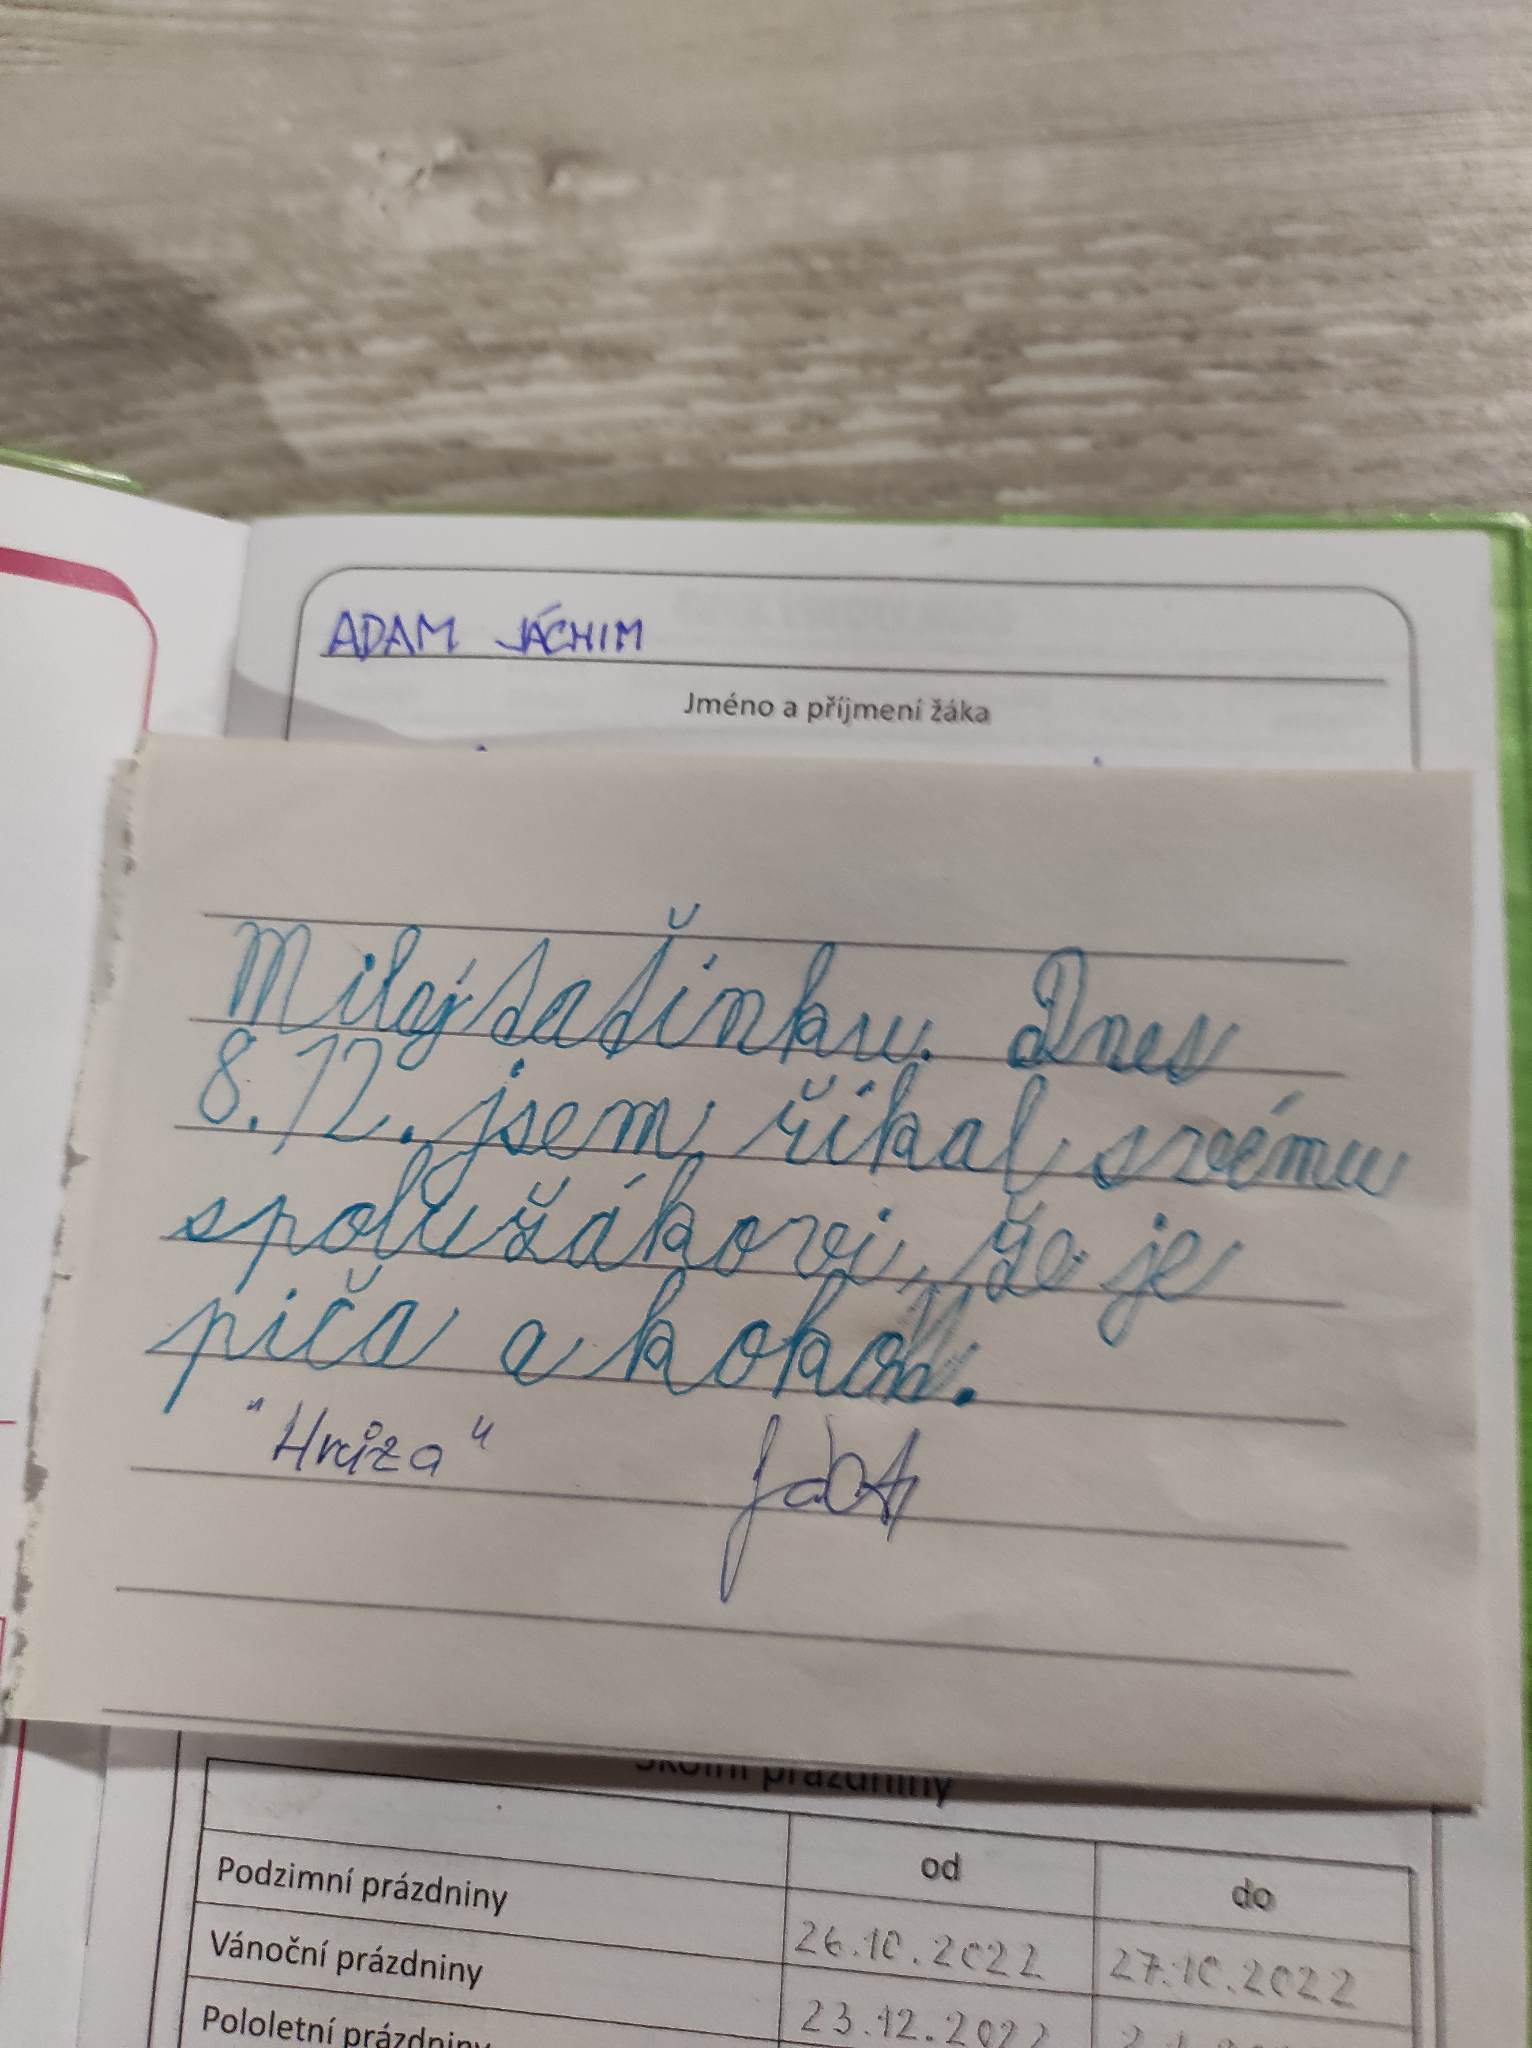 ADAM JÁCHIM
Jméno a příjmení žáka
Milej taťínku. Dnes
8.12. jsem říkal svému
spolužákovi, že je
piča a kokot.
"Hrůza"
Školní prázdniny
od do
Podzimní prázdniny 26.10.2022 27.10.2022
Vánoční prázdniny 23.12.2022
Pololetní prázdniny